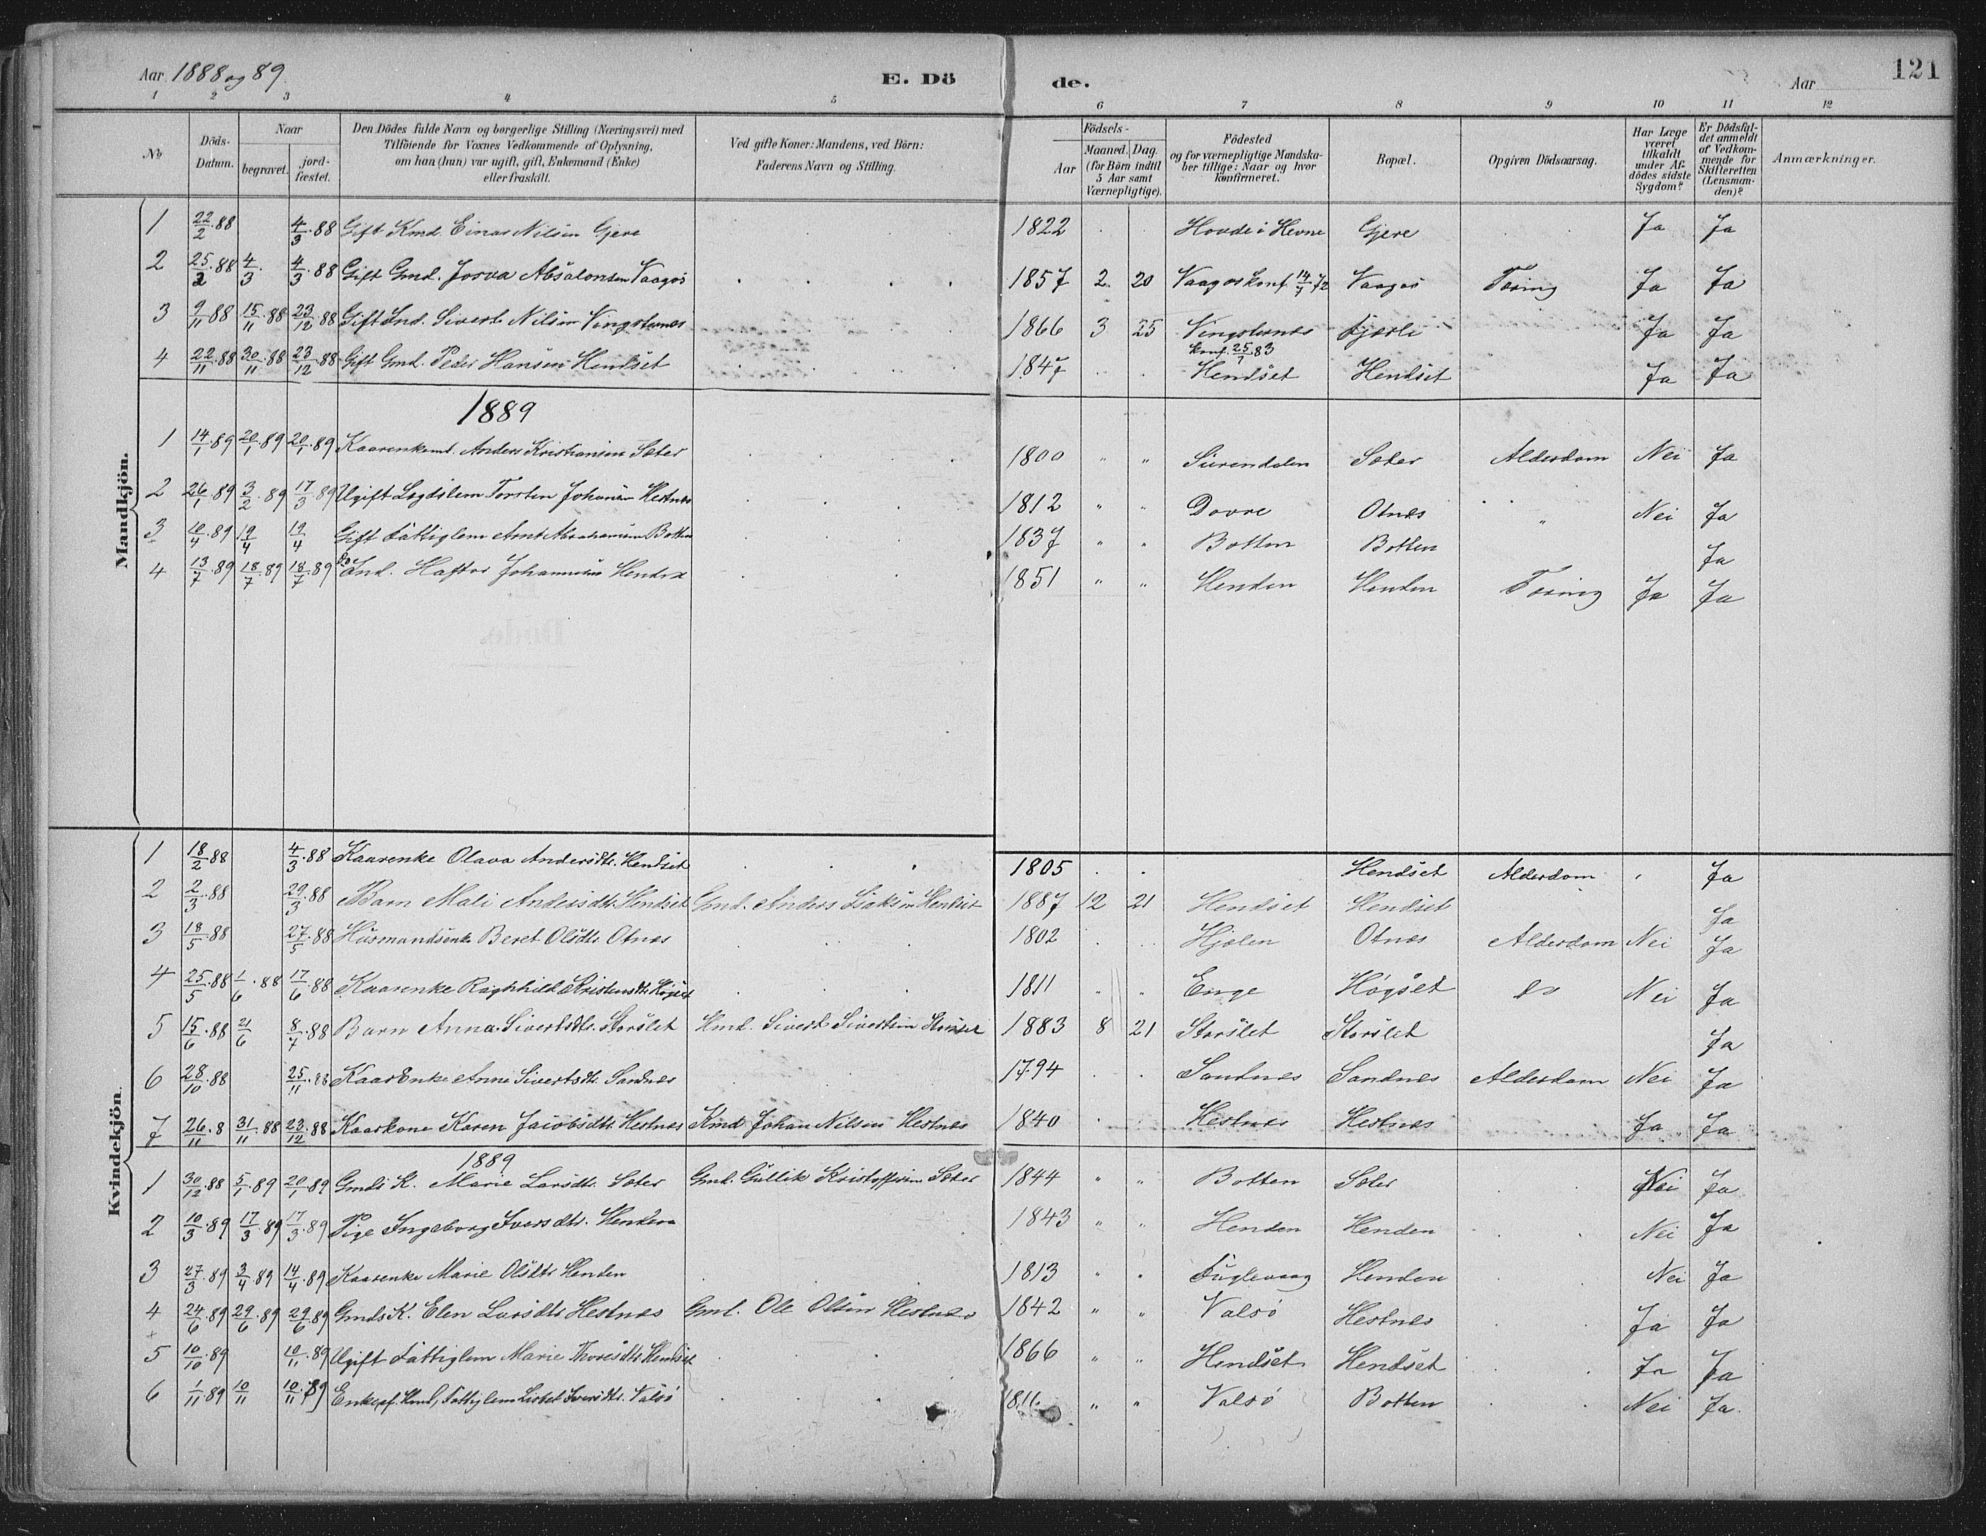 Aar 1888 og 89. E. Dö de. Aar 121
1 2 3 4 5 6 7 8 9 10 11 12
No Döds-Datum. Naar begravet. jordfæstet. Den Dödes fulde Navn og borgerlige Stilling (Næringsvei) med Tilföiende for Voxnes Vedkommende af Oplysning, om han (hun) var ugift, gift, Enkemand (Enke) eller fraskilt. Ved gifte Koner: Mandens, ved Börn: Faderens Navn og Stilling. Födsels- Aar Maaned. Dag. (for Börn indtil 5 Aar samt Værnepligtige). Födested og for værnepligtige Mandskaber tillige: Naar og hvor konfirmeret. Bopæl. Opgiven Dödsaarsag. Har Læge været tilkaldt under Afdödes sidste Sygdom? Er Dödsfaldet anmeldt af Vedkommende for Skifteretten (Lensmanden)? Anmærkninger.
Mandkjön.
1 22/2.88 4/3.88 Gift Kmd. Einar Nilsen Gjere 1822 Hovde i Hevne Gjere Ja Ja
2 25/2.88 4/3. 4/3.88 Gift Gmd. Josva Absalonsen Vaagos 1857 2 20 Vaagos konf 14/7 72 Vaagos Tæring Ja Ja
3 9/11 88 15/11.88 23/12.88 Gift Ind. Sivert Nilsen Vingsternes 1866 3 25 Vingsternes konf. 25/7 83 Fjærli Ja Ja
4 22/11.88 30/11.88 23/12.88 Gift Gmd. Peder Hansen Hendset 1847 Hendset Hendset Ja Ja
1889
1 14/1.89 20/1.89 20/1.89 Kaarenkemd. Anders Kristiansen Sæter 1800 " " Surendalen Sæter Alderdom Nei Ja
2 26/1.89 3/2.89 17/3.89 Ugift Lægdslem Torsten Johansen Hestnes 1812 " " Dovre Otnes " Nei Ja
3 10/4.89 19/4 19/4 Gift Fattiglem Arnt Abrahamsen Botten 1837 " " Botten Botten Ja
4 13/7.89 18/7.89 18/7.89 do Ind. Haftor Johannesen Henden 1851 " " Henden Henden Tæring Ja Ja
Kvindekjön.
1 18/2 88 4/3.88 Kaarenke Olava Andersdtr. Hendset 1805 Hendset Alderdom Ja
2 2/3.88 29/3.88 Barn Mali Andersdtr. Hendset Gmd. Anders Isaksen Hendset 1887 12 21 Hendset Hendset Ja
3 18/5.88 27/5.88 Husmandsenke Beret Olsdtr. Otnes 1802 Hjælen Otnes Alderdom Nei Ja
4 25/5.88 1/6.88 17/6.88 Kaarenke Raghnhild Kristensdtr. Høgset 1811 " " Enge Høgset do Nei Ja
5 15/6.88 21/6 8/7.88 Barn Anna Sivertsdtr. Storslet Hmd. Sivert Sivertsen Storslet 1883 8 21 Storslet Storslet Ja
6 28/10.88 25/11.88 Kaarenke Anne Sivertsdtr. Sandnes 1794 Sandnes Sandnes Alderdom Nei Ja
7 26/11.8 31/11.88 23/12.88 Kaarkone Karen Jacobsdtr. Hestnes Kmd Johan Nilsen Hestnes 1840 Hestnes Hestnes Ja Ja
1889
1 30/12.88 5/1.89 20/1.89 Gmds K. Marie Larsdtr. Sæter Gmd. Gullik Kristoffersen Sæter 1844 " " Botten Sæter Nei Ja
2 10/3.89 17/3.89 17/3.89 Pige Ingeborg Iversdtr. Henden 1843 " " Henden Henden Nei Ja
3 27/3.89 3/4.89 14/4.89 Kaarenke Marie Olsdtr Henden 1813 " " Fuglevaag Henden Nei Ja
4 24/6.89 29/6.89 29/6.89 Gmds K. Elen Larsdtr Hestnes Gmd. Ole Olsen Hestnes 1842 " " Valsø Hestnes Ja Ja
5 10/10.89 10/11.89 Ugift Fattiglem Marie Thoresdtr Hendset 1866 " " Hendset Hendset Ja Ja
6 1/11.89 10/11 10/11.89 Enke af. Hmd, Fattiglem Lisbet Iversdtr. Valsø 1811 " " Valsø Botten Nei Ja.